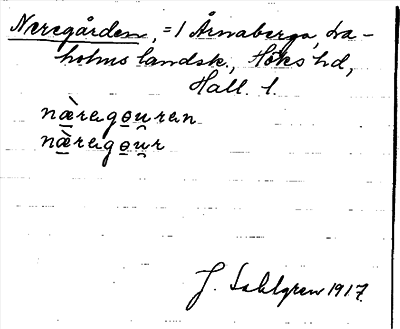 Neregården, = 1 Årnaberga, La-
holms landsk., Höks hd,
Hall. l.
næ̀ragọu̯ran
næ̀ragọu̯r
J. Sahlgren 1917.